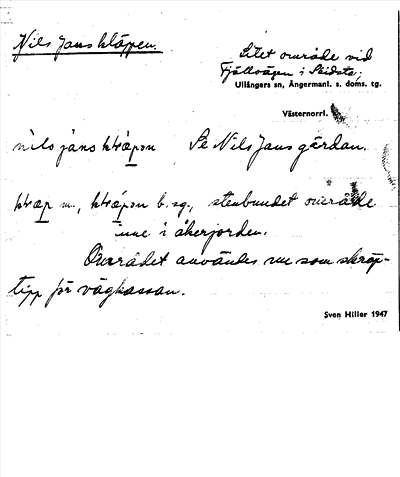 Nils Jansklåppen.
Litet område vid
Fjällvägen i Skidsta;
Ullångers sn, Ångermanl. s. doms. tg.
Västernorrl.
Se Nils Jansgårdan.
b. sg., stenbundet område
inne i åkerjorden.
Området användes nu som skräp-
tipp för vägkassan.
Sven Hiller 1947